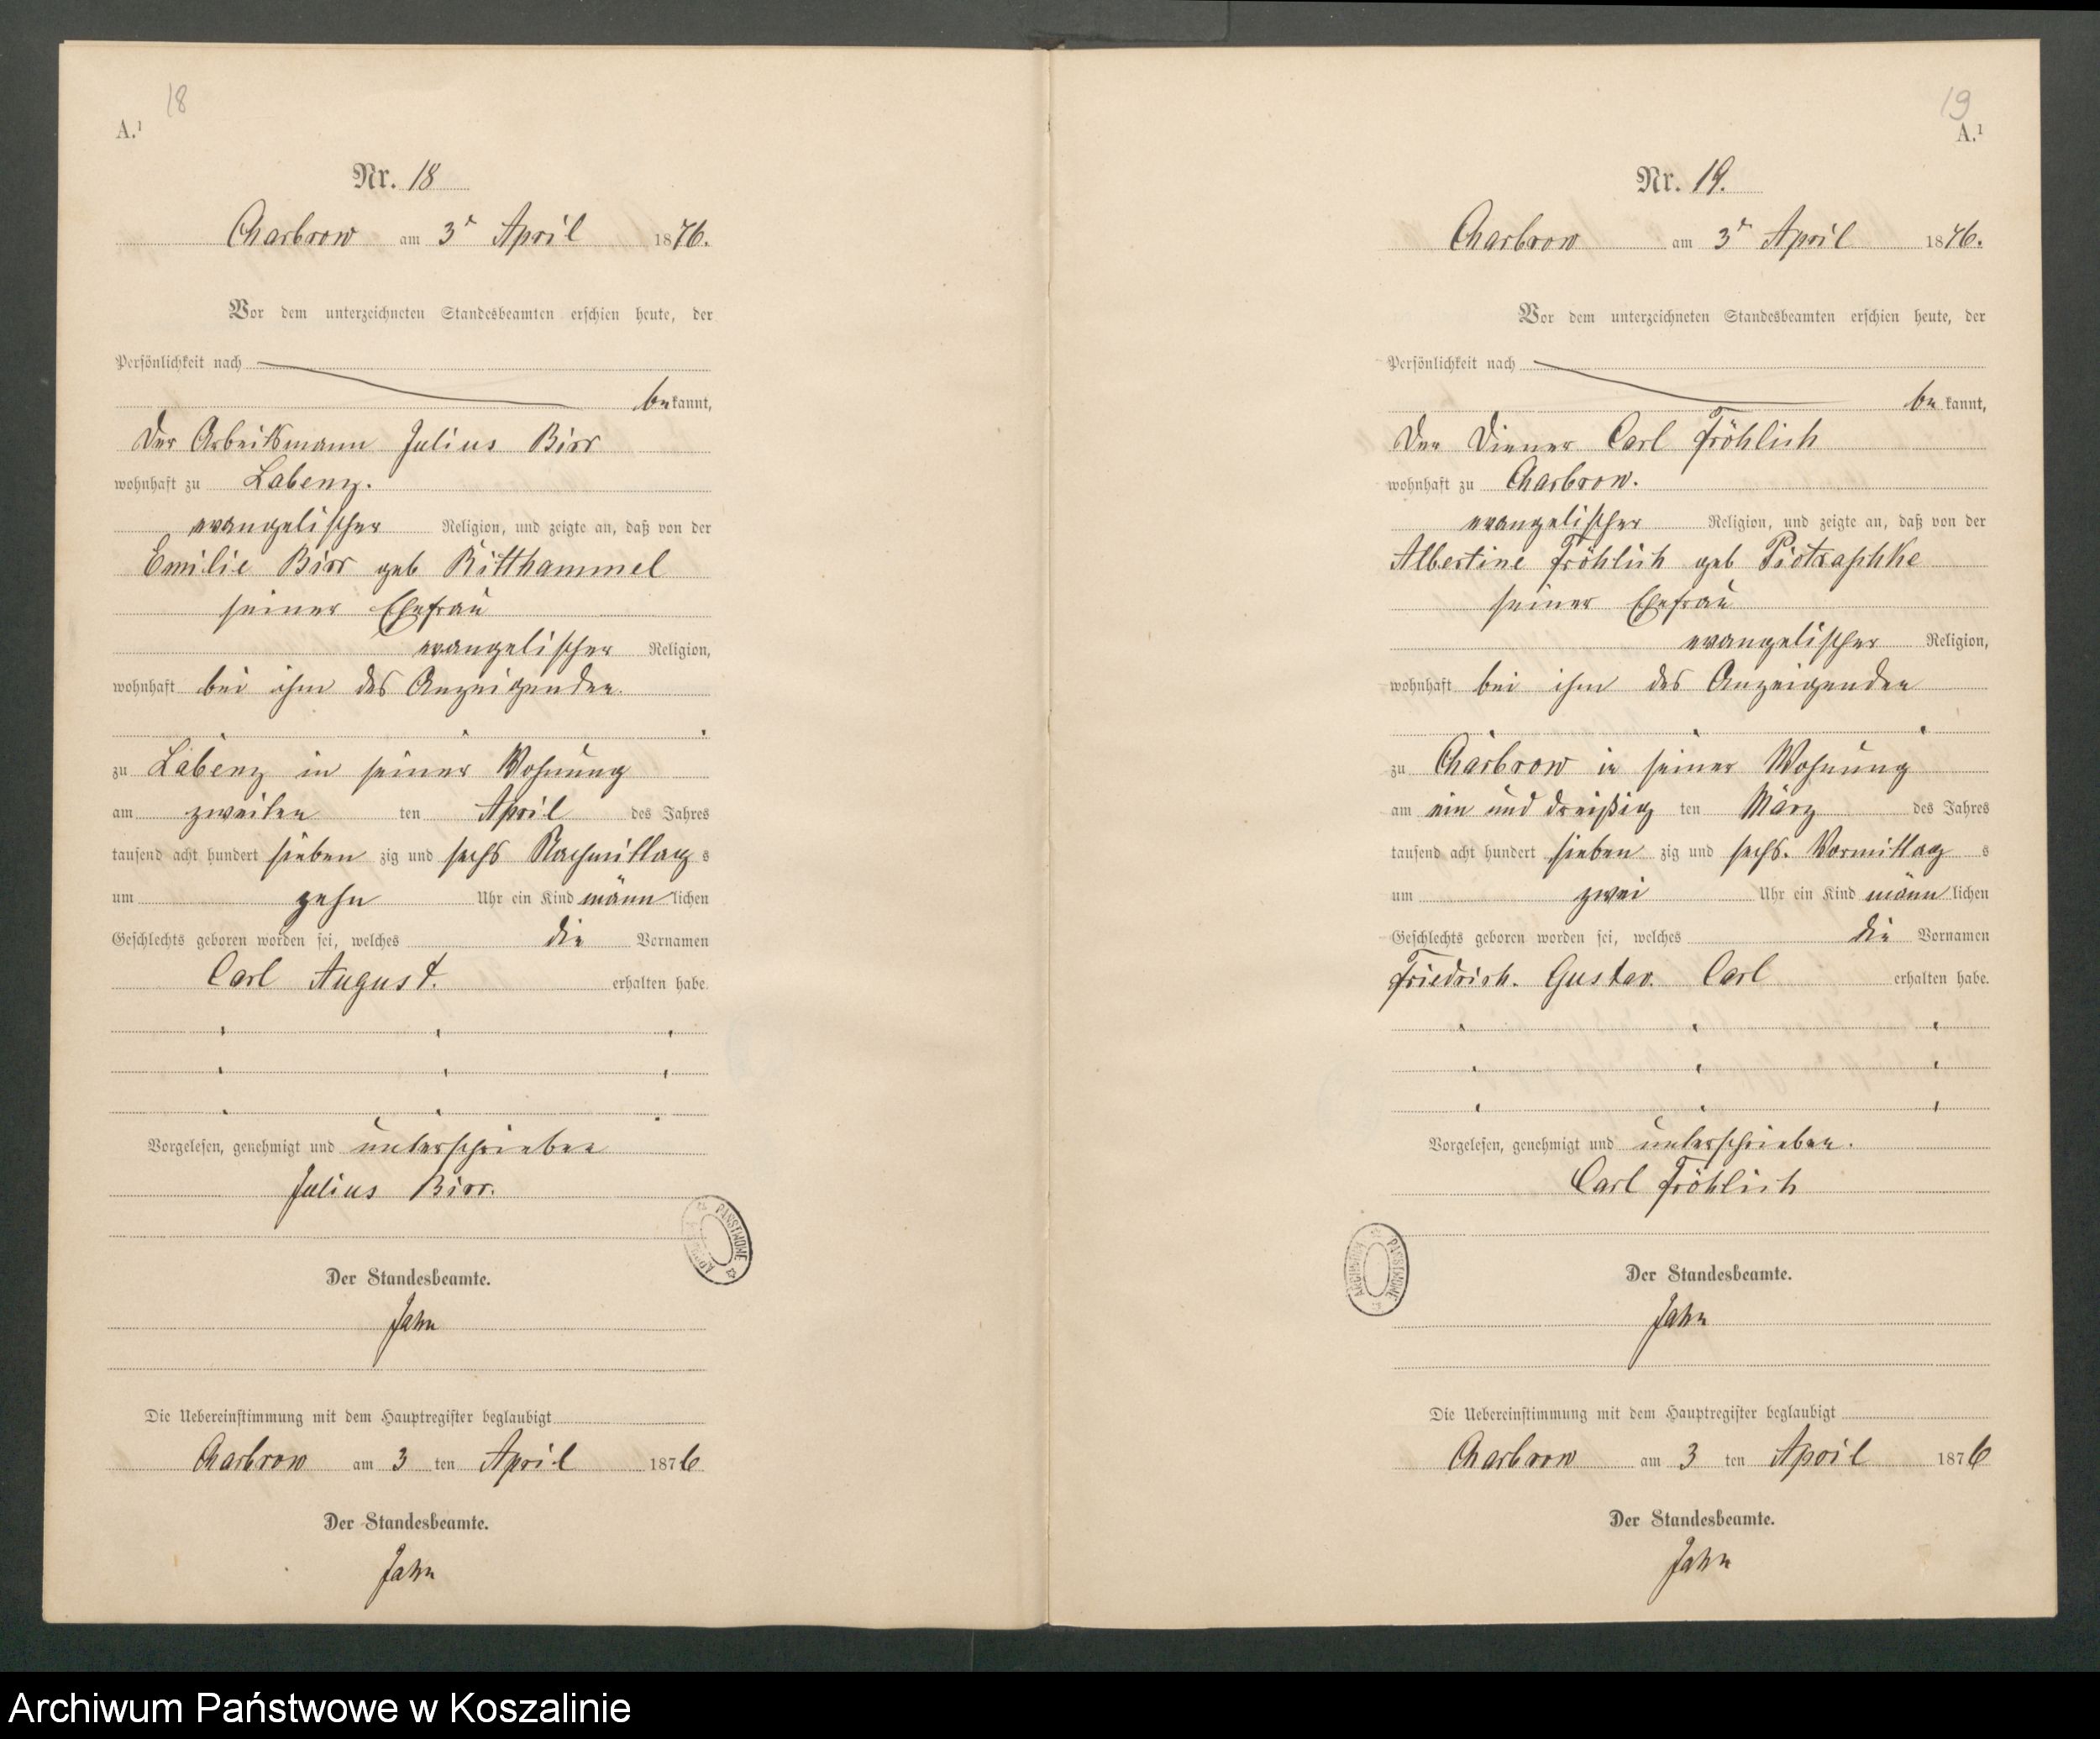 18
A.¹
Nr. 18
Charbrow am 3ᵗ April 1876.
Vor dem unterzeichneten Standesbeamten erschien heute, der
Persönlichkeit nach
bekannt,
Der Arbeitsmann Julius Birr
wohnhaft zu Labenz.
evangelischer Religion, und zeigte an, daß von der
Emilie Birr geb Ritthammel
seiner Ehefrau
evangelischer Religion,
wohnhaft bei ihm des Anzeigenden
zu Labenz in seiner Wohnung
am zweiten ten April des Jahres
tausend acht hundert sieben zig und sechs Nachmittag s
um zehn Uhr ein Kind männ lichen
Geschlechts geboren worden sei, welches die Vornamen
Carl August. erhalten habe.
Vorgelesen, genehmigt und unterschrieben
Julius Birr.
ARCHIWUM PAŃSTWOWE
Der Standesbeamte.
Jahn
Die Uebereinstimmung mit dem Hauptregister beglaubigt
Charbrow am 3 ten April 1876
Der Standesbeamte.
Jahn
19
A.¹
Nr. 19.
Charbrow am 3ᵗ April 1876.
Vor dem unterzeichneten Standesbeamten erschien heute, der
Persönlichkeit nach
be kannt,
Der Diener Carl Fröhlich
wohnhaft zu Charbrow.
evangelischer Religion, und zeigte an, daß von der
Albertine Fröhlich geb Piotraschke
seiner Ehefrau
evangelischer Religion,
wohnhaft bei ihm des Anzeigenden
zu Charbrow in seiner Wohnung
am ein und dreißig ten März des Jahres
tausend acht hundert sieben zig und sechs. Vormittag s
um zwei Uhr ein Kind männ lichen
Geschlechts geboren worden sei, welches die Vornamen
Friedrich. Gustav. Carl erhalten habe.
Vorgelesen, genehmigt und unterschrieben.
Carl Fröhlich
ARCHIWUM PAŃSTWOWE
Der Standesbeamte.
Jahn
Die Uebereinstimmung mit dem Hauptregister beglaubigt
Charbrow am 3 ten April 1876
Der Standesbeamte.
Jahn
Archiwum Państwowe w Koszalinie